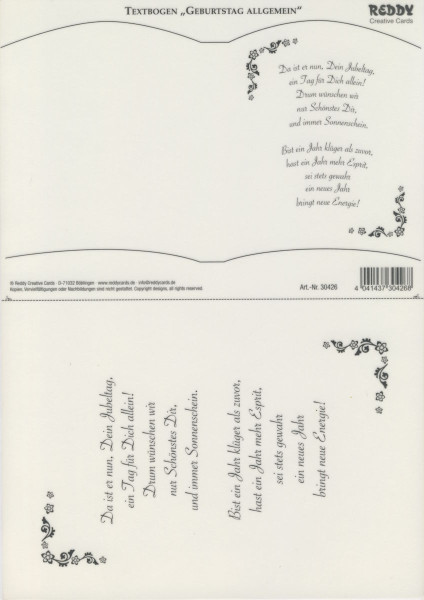 TEXTBOGEN „GEBURTSTAG ALLGEMEIN“
REDDY
Creative Cards
Da ist er nun, Dein Jubeltag,
ein Tag für Dich allein!
Drum wünschen wir
nur Schönstes Dir,
und immer Sonnenschein.
Bist ein Jahr klüger als zuvor,
hast ein Jahr mehr Esprit,
sei stets gewahr
ein neues Jahr
bringt neue Energie!
® Reddy Creative Cards · D-71032 Böblingen · www.reddycards.de · info@reddycards.de
Kopien, Vervielfältigungen oder Nachbildungen sind nicht gestattet. Copyright designs, all rights reserved.
Art.-Nr. 30426
4 041437 304268
Da ist er nun, Dein Jubeltag,
ein Tag für Dich allein!
Drum wünschen wir
nur Schönstes Dir,
und immer Sonnenschein.
Bist ein Jahr klüger als zuvor,
hast ein Jahr mehr Esprit,
sei stets gewahr
ein neues Jahr
bringt neue Energie!